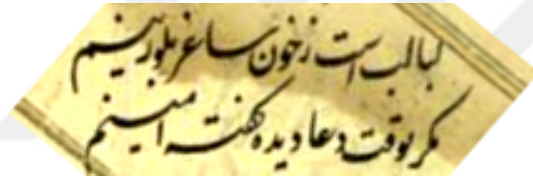 لبالب است ز خون ساغر بلورینم
مگر بوقت دعا دیده گفت آمینم